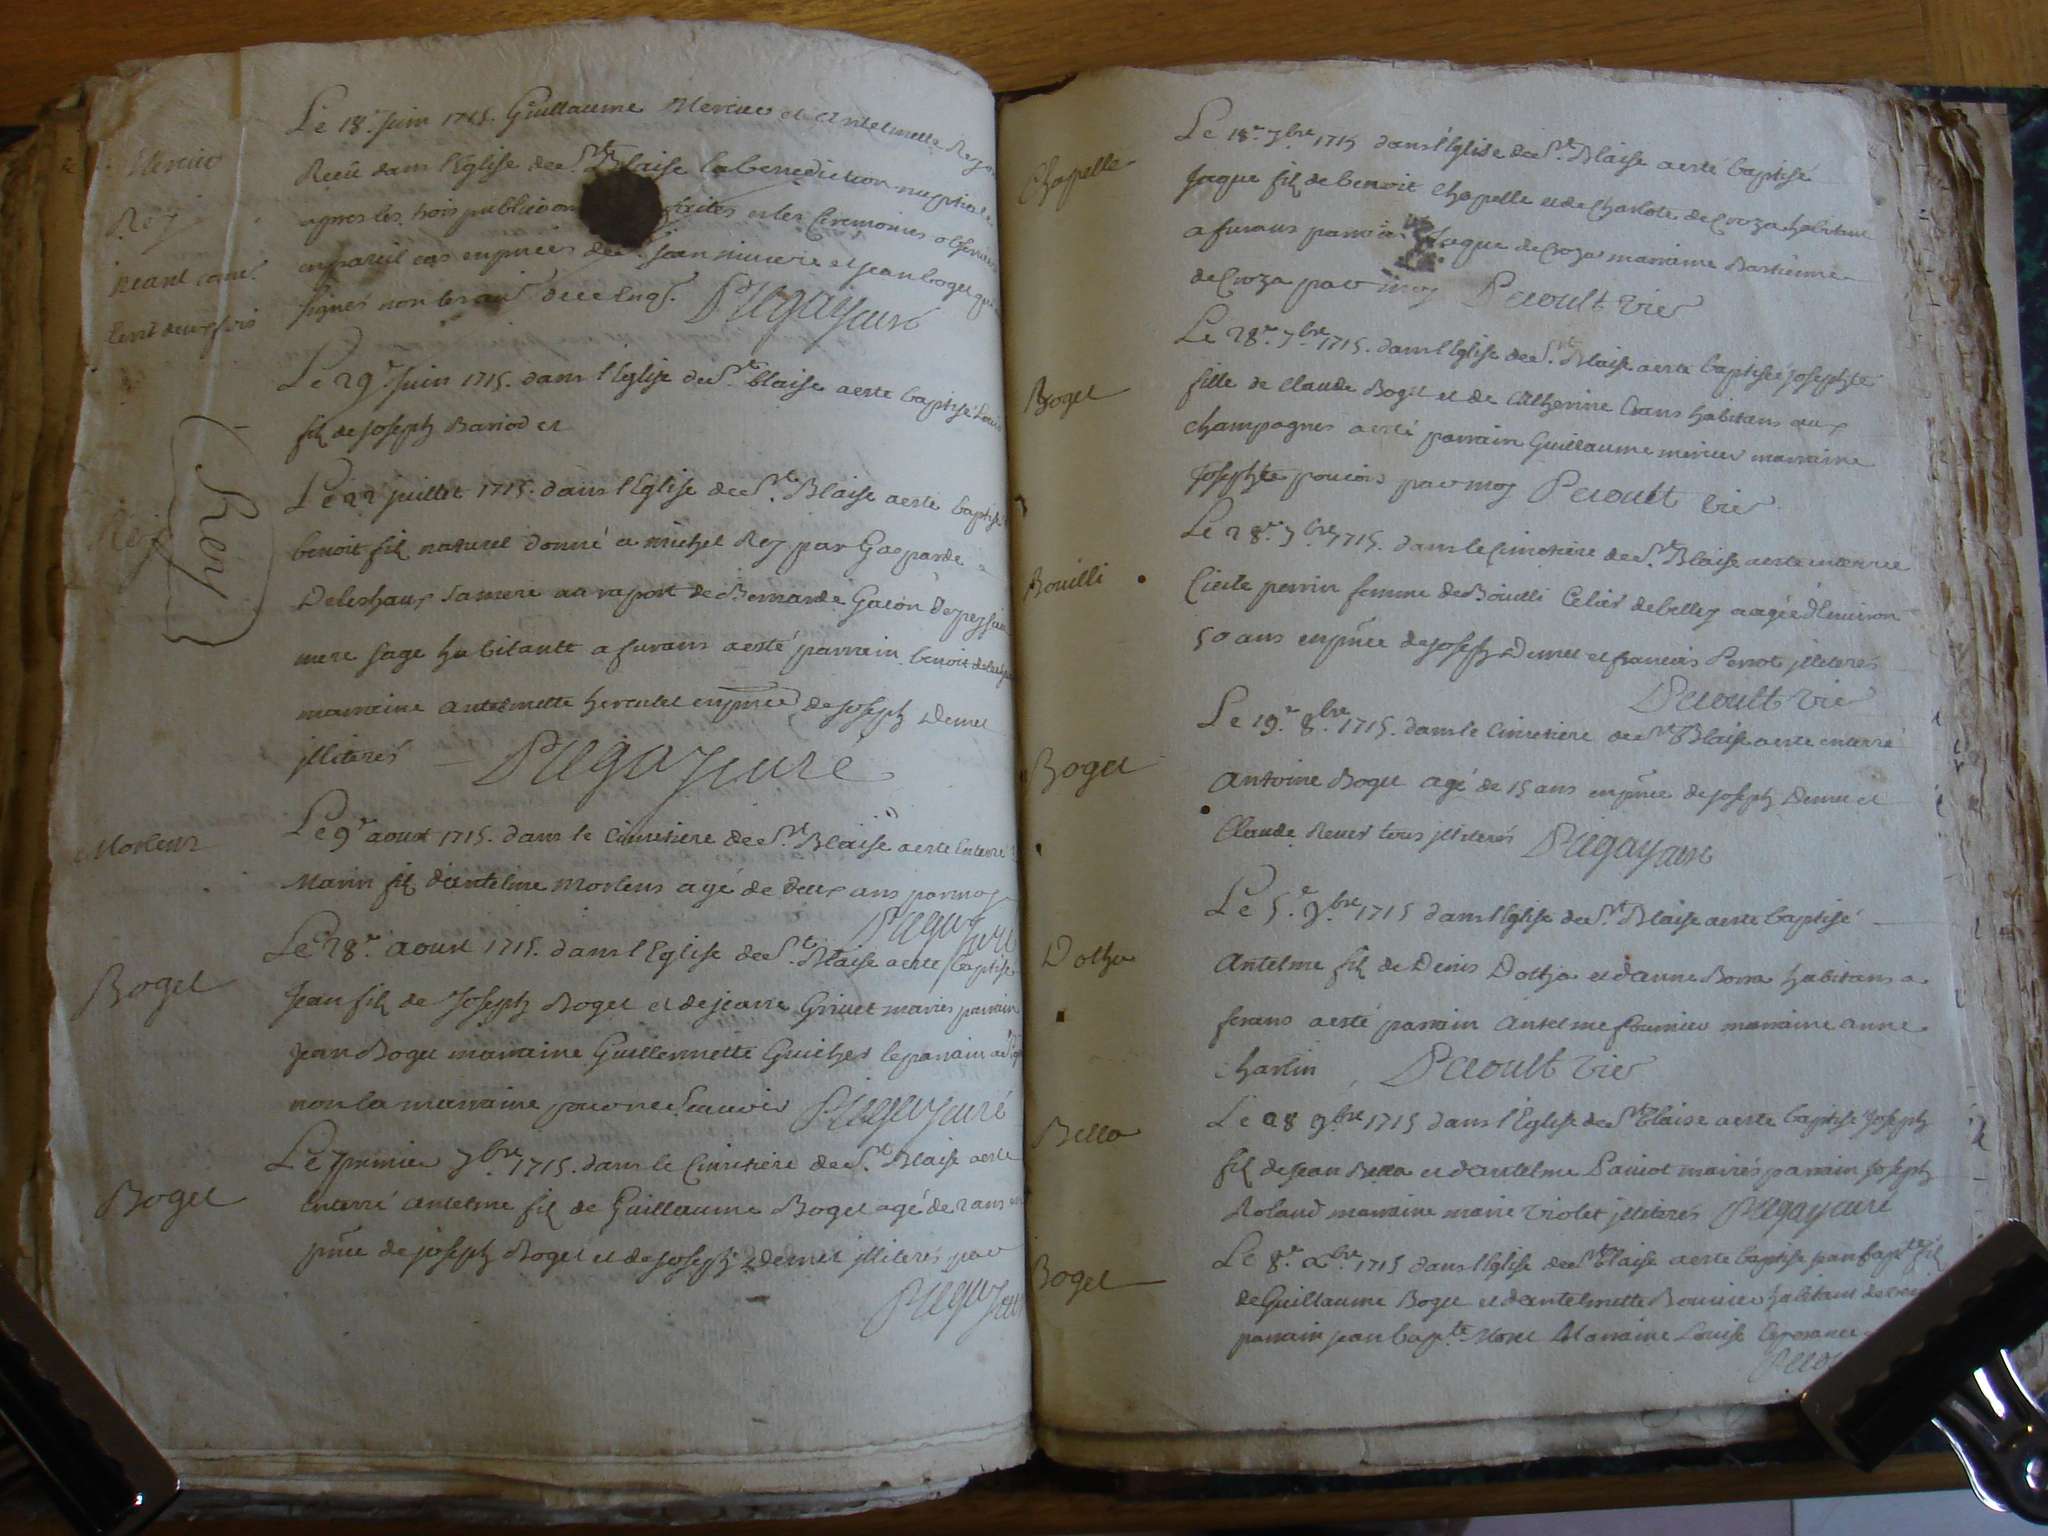 Mercier
Rey
neant comē
Le 18e Juin 1715. Guillaume Mercier et Antelmette Rey
Receu dans l'Eglise de St Blaise la benediction nuptiale
apres les trois faites et les Ceremonies observées
en pareil cas en pnce de Jean et jean boget qui
signés non les
Pugay curé
Le 29e Juin 1715. dans l'Eglise de St blaise a esté baptisé Louis
fils de Joseph Bariod et
Rey
Rey
Le 22 juillet 1715. dans l'Eglise de St Blaise a esté baptisé
benoit fils naturel donné a michel Rey par Gasparde
Deleschaux sa mere au raport de Bernarde Gacon
mere sage habitante a furans a esté parrain benoit
marraine antelmette herculet en pnce de Joseph Demet
illiterés Pugay curé
Morlens
Le 9e aoust 1715. dans le Cimetiere de St Blaise a esté enterré
Marin fils d'antelme Morlens agé de deux ans par moy
Pugay curé
Boget
Le 28e aoust 1715. dans l'Eglise de St Blaise a esté baptisé
Jean fils de Joseph Boget et de jeane Grivet mariés parrain
Jean Boget marraine Guillermette Guicher le parrain a
non la marraine pour ne scavoir Pugay curé
Boget
Le premier 7bre 1715. dans le Cimetiere de St Blaise a esté
enterré antelme fils de Guillaume Boget agé de 2 ans en
pnce de joseph Boget et de Joseph Demet illiterés par
Pugay curé
Chapelle
Le 18e 7bre 1715 dans l'Eglise de St Blaise a esté baptisé
Jaque fils de benoit Chapelle et de Charlote de Croza habitans
a furans parrain Jaque de Croza marraine Bastienne
de Croza par moy Pecoult vic
Boget
Le 28e 7bre 1715. dans l'Eglise de St Blaise a esté baptisée josephte
fille de Claude Boget et de Catherine habitans aux
champagnes a esté parrain Guillaume mercier marraine
Josephte par moy Pecoult vic
Bouilli
Le 28e 7bre 1715. dans le Cimetiere de St Blaise a esté enterrée
Cecile perrin femme de Bouilli de belley aagée d'Environ
50 ans en pnce de Joseph Demet et francois Perrot illiterés
Pecoult vic
Boget
Le 19e 8bre 1715. dans le Cimetiere de St Blaise a esté enterré
Antoine Boget agé de 15 ans en pnce de joseph Demet et
Claude tous illiterés Pugay curé
Dotha
Le 5e 9bre 1715 dans l'Eglise de St Blaise a esté baptisé
Antelme fils de Denis Dotha et d'anne Borra habitans a
ferans a esté parrain Antelme fournier marraine anne
charlin Pecoult vic
Bella
Le 28 9bre 1715 dans l'Eglise de St blaise a esté baptisé Joseph
fils de Jean Bella et d'antelme mariés parrain Joseph
Roland marraine marie violet illiterés Pugay curé
Boget
Le 8e Xbre 1715 dans l'Eglise de St blaise a esté baptisé jean bapte fils
de Guillaume Boget et d'antelmette habitans de
parrain jean bapte Morel Marraine Louise